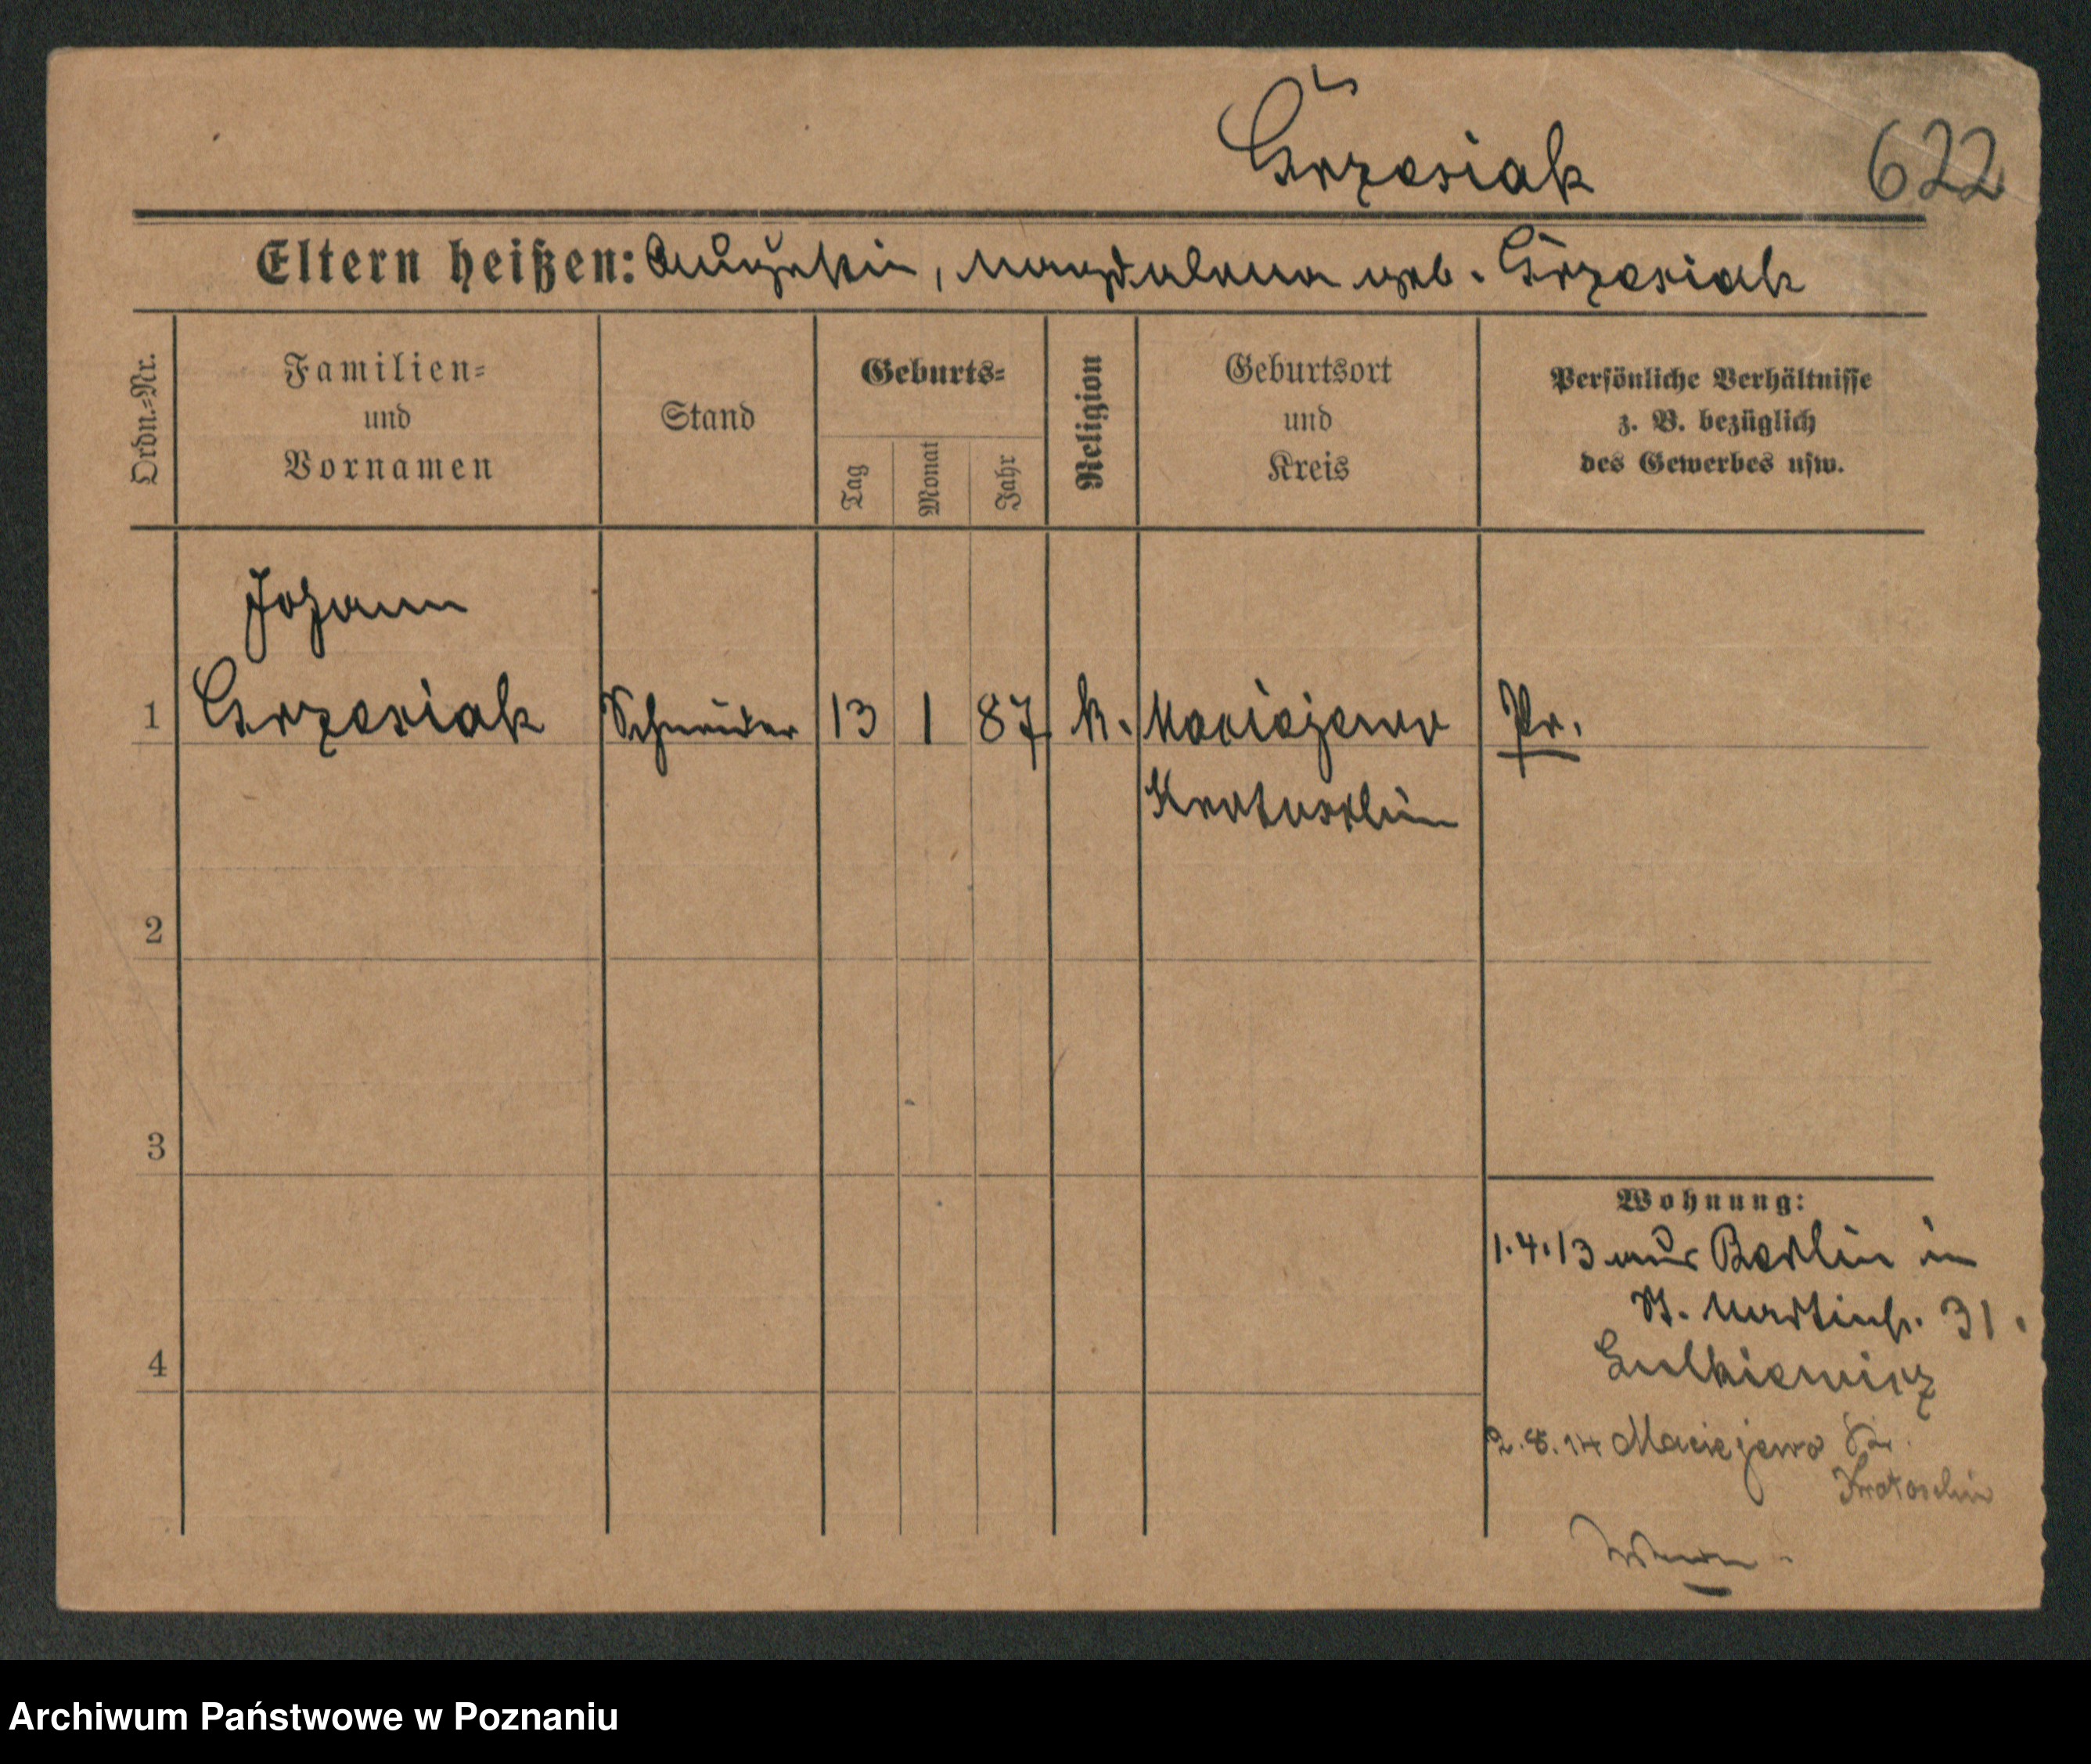 Grzesiak 622
Eltern heißen: Augustin, Magdalena geb. Grzesiak
Ordn.=Nr.
Familien=
und
Vornamen
Stand
Geburts=
Tag
Monat
Jahr
Religion
Geburtsort
und
Kreis
Persönliche Verhältnisse
z. B. bezüglich
des Gewerbes usw.
Johann
1 Grzesiak Schneider 13 1 87 k. Maciejewo Pr.
Krotoschin
2
3
4
Wohnung:
1.4.13 aus Berlin in
St. Martinstr. 31.
Gulkiewicz
2.8.14 Maciejewo Kr.
Krotoschin
Archiwum Państwowe w Poznaniu